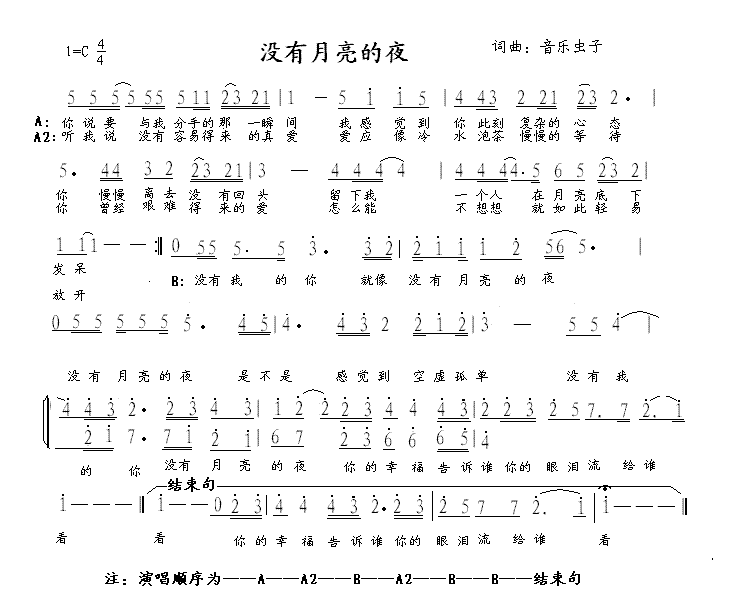 1=C 4/4 没有月亮的夜 词曲：音乐虫子
5 5 5 5 5 5 5 1 1 2 3 2 1 | 1 — 5 1 1 5 | 5 1 1 3 2 2 1 2 3 2 · |
A：你说要 与我分手的那 一瞬间 我感 觉到 你 此刻 复杂的 心 态
A2：听我说 没有容易得来的真爱 爱应 像冷 水 泡茶 慢慢的 等 待
5 · 4 4 3 2 2 3 2 1 | 3 — 4 4 4 4 | 4 4 4 4 · 5 6 5 2 3 2 |
你 慢慢 离去 没 有回头 留下我 一个人 在月亮底 下
你 曾经 艰难 得 来的爱 怎么能 不想想 就如此轻 易
1 1 1 — — :|| 0 5 5 5 · 5 3 · 3 2 | 2 1 1 1 1 2 5 6 5 · |
发呆 B：没有我 的 你 就像 没 有 月 亮 的 夜
放开
0 5 5 5 5 5 5 · 4 5 | 4 · 4 3 2 2 1 2 | 3 — 5 5 4 |
没 有 月 亮 的 夜 是 不 是 感 觉 到 空 虚 孤 单 没 有 我
4 4 3 2 · 2 3 4 3 | 1 2 2 2 3 4 4 4 3 | 2 2 2 3 2 5 7 . 7 2 . 1
2 1 7 · 7 1 2 1 | 6 7 2 3 6 6 6 5 | 4
的 你 没有 月 亮 的 夜 你的幸 福 告诉谁 你的 眼 泪流 给谁
结束句
1 — — || 1 — — 0 2 3 | 4 4 4 4 3 2 · 2 3 | 2 2 3 2 5 7 7 2 . 1 | 1 — — ||
看 看 你 的 幸 福 告 诉 谁 你的 眼 泪 流 给 谁 看
注：演唱顺序为——A——A2——B——A2——B——B——结束句